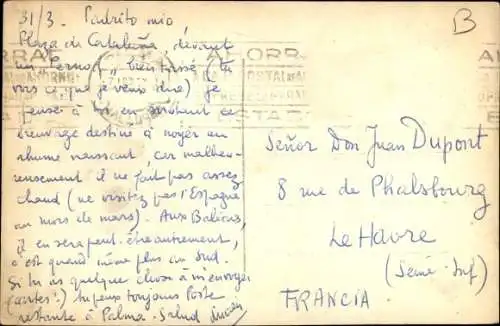 31/3. Padrito mio
Plaza de Cataluña, devant
un "Pernod", bien tassé (tu
vois ce que je veux dire) je
pense à toi en sirotant ce
breuvage destiné à noyer un
rhume naissant, car malheu-
reusement il ne fait pas assez
chaud (ne visitez pas l'Espagne
au mois de mars). Aux Baléares,
il en sera peut-être autrement,
c'est quand même plus au Sud.
Si tu as quelque chose à m'envoyer
(cartes?) tu peux toujours Poste
restante à Palma. Salud
B
Señor Don Juan Dupont
8 rue de Phalsbourg
Le Havre
(Seine-Inf)
FRANCIA.